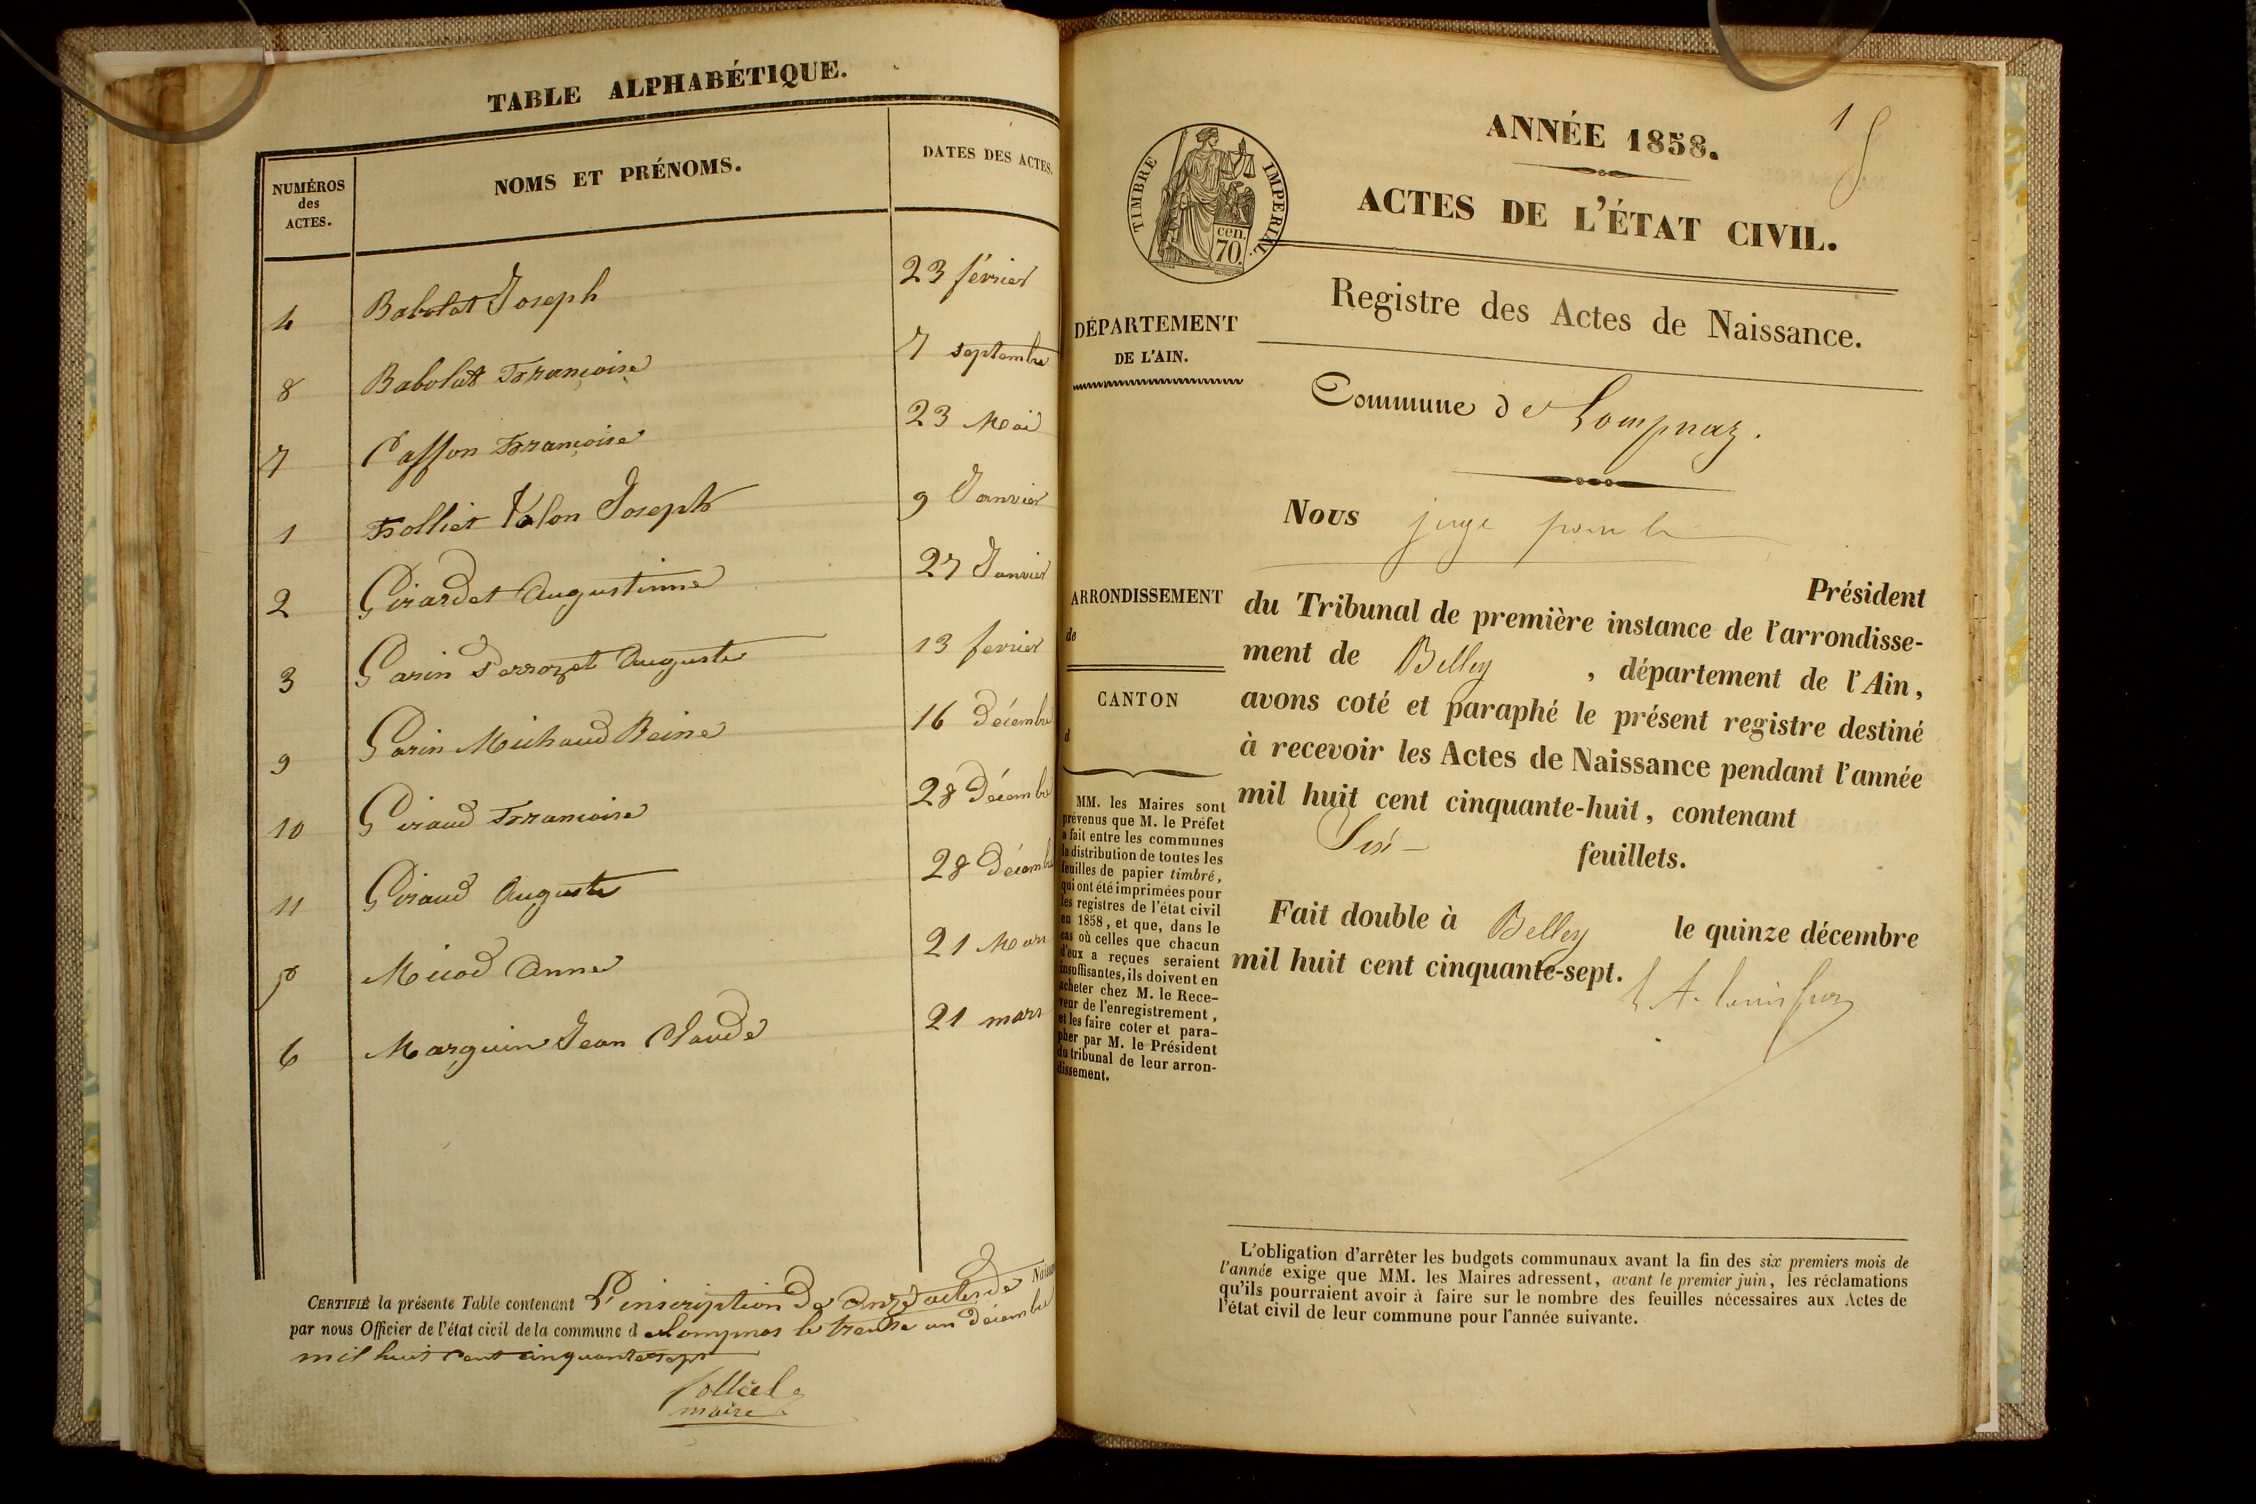 TABLE ALPHABÉTIQUE.
NUMÉROS des ACTES.
NOMS ET PRÉNOMS.
DATES DES ACTES.
4 Babolat Joseph 23 février
8 Babolat Françoise 7 septembre
7 Casson Françoise 23 Mai
1 Folliet Valon Joseph 9 Janvier
2 Girardet Augustinne 27 Janvier
3 Garin Perrozet Auguste 13 fevrier
9 Garin Michaud Reine 16 décembre
10 Giraud Françoise 28 Décembre
11 Giraud Auguste 28 Décemb
5 Micod Anne 21 Mars
6 Marguin Jean Claude 21 mars
CERTIFIÉ la présente Table contenant L'inscription de Onze actes de Naissan
par nous Officier de l'état civil de la commune d Lompnas le trente un décembre
mil huit cent cinquante sept
folliet
maire
ANNÉE 1858.
1
ACTES DE L'ÉTAT CIVIL.
TIMBRE IMPERIAL.
cen.
70.
Registre des Actes de Naissance.
DÉPARTEMENT
DE L'AIN.
Commune de Lompnaz.
Nous juge pour le
Président
ARRONDISSEMENT
de
CANTON
d
du Tribunal de première instance de l'arrondisse-
ment de Belley, département de l'Ain,
avons coté et paraphé le présent registre destiné
à recevoir les Actes de Naissance pendant l'année
mil huit cent cinquante-huit, contenant
Six feuillets.
Fait double à Belley le quinze décembre
mil huit cent cinquante-sept.
MM. les Maires sont
prévenus que M. le Préfet
a fait entre les communes
la distribution de toutes les
feuilles de papier timbré,
qui ont été imprimées pour
les registres de l'état civil
en 1858, et que, dans le
cas où celles que chacun
d'eux a reçues seraient
insuffisantes, ils doivent en
acheter chez M. le Rece-
veur de l'enregistrement,
et les faire coter et para-
pher par M. le Président
du tribunal de leur arron-
dissement.
L'obligation d'arrêter les budgets communaux avant la fin des six premiers mois de
l'année exige que MM. les Maires adressent, avant le premier juin, les réclamations
qu'ils pourraient avoir à faire sur le nombre des feuilles nécessaires aux Actes de
l'état civil de leur commune pour l'année suivante.